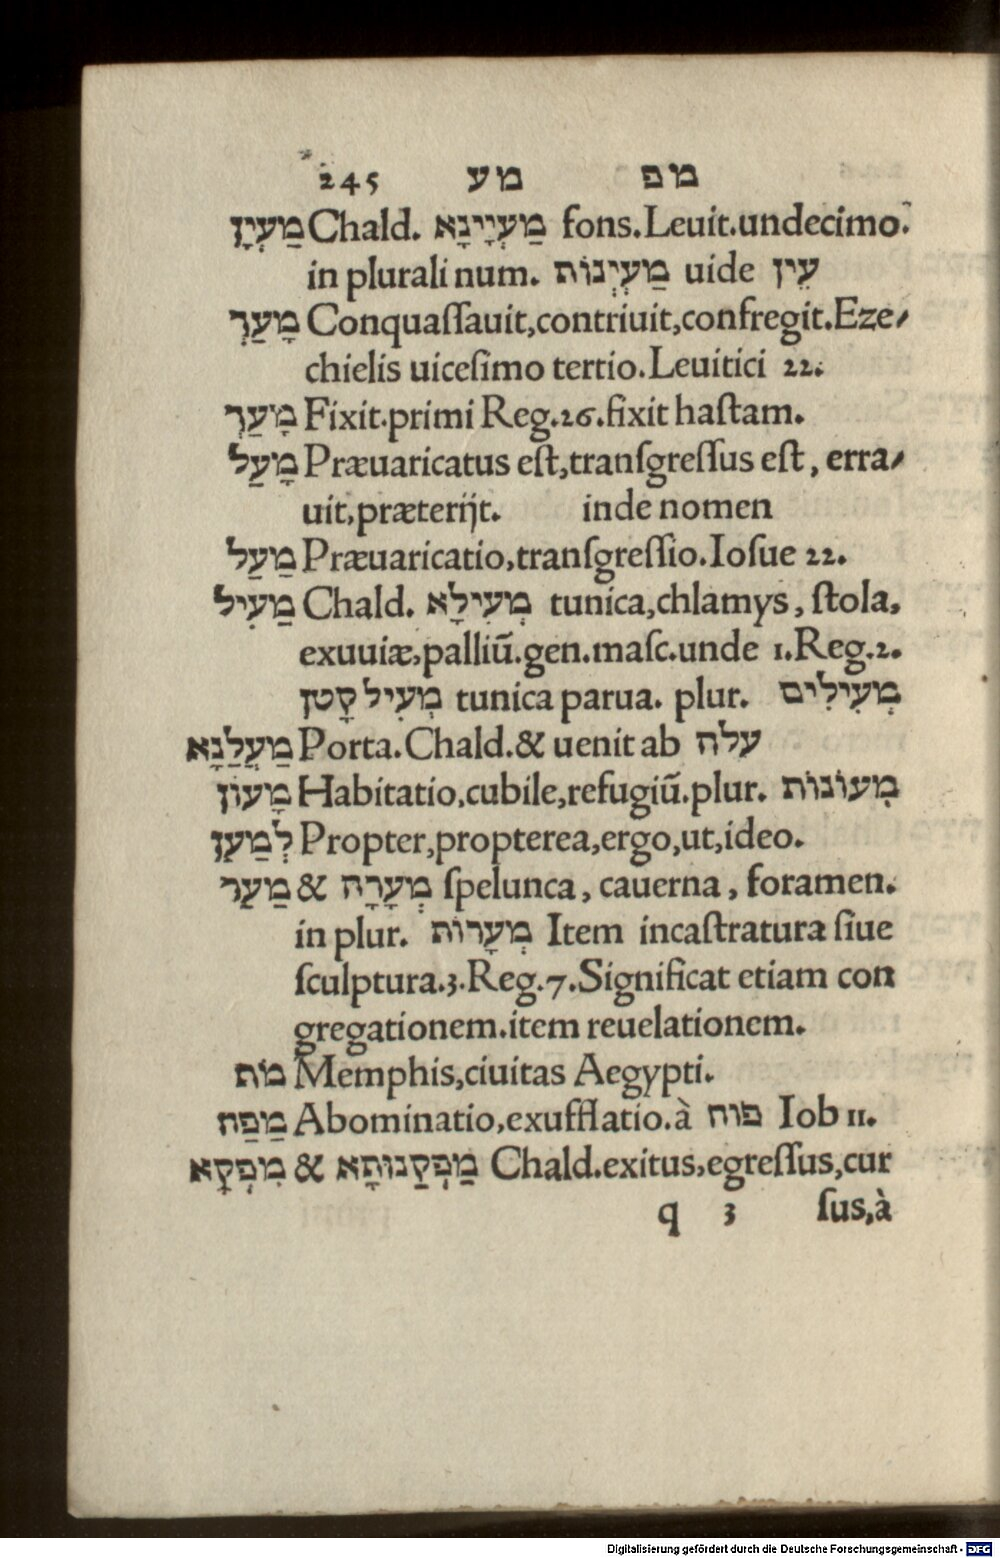 245 מע מפ
מַעְיָן Chald. מַעְיָינָא fons. Leuit. undecimo.
in plurali num. מַעְיְנוֹת uide עַיִן
מָעַךְ Conquaſſauit, contriuit, confregit. Eze⸗
chielis uiceſimo tertio. Leuitici 22.
מָעַךְ Fixit. primi Reg. 26. fixit haſtam.
מָעַל Præuaricatus eſt, tranſgreſſus eſt, erra⸗
uit, præterijt. inde nomen
מַעַל Præuaricatio, tranſgreſſio. Ioſue 22.
מַעִיל Chald. מְעִילָא tunica, chlamys, ſtola,
exuuiæ, palliū. gen. maſc. unde 1. Reg. 2.
מְעִיל קָטן tunica parua. plur. מְעִילִים
מַעֲלַנָא Porta. Chald. & uenit ab עלה
מָעוֹן Habitatio, cubile, refugiū. plur. מְעוֹנוֹת
לְמַעַן Propter, propterea, ergo, ut, ideo.
מַעַר & מְעָרָה ſpelunca, cauerna, foramen.
in plur. מְעָרוֹת Item incaſtratura ſiue
ſculptura. 3. Reg. 7. Significat etiam con
gregationem. item reuelationem.
מֹת Memphis, ciuitas Aegypti.
מַפַּח Abominatio, exufflatio. à פוח Iob 11.
מִפְקָא & מַפְקַנוּתָא Chald. exitus, egreſſus, cur
q 3 ſus, à
Digitalisierung gefördert durch die Deutsche Forschungsgemeinschaft - DFG